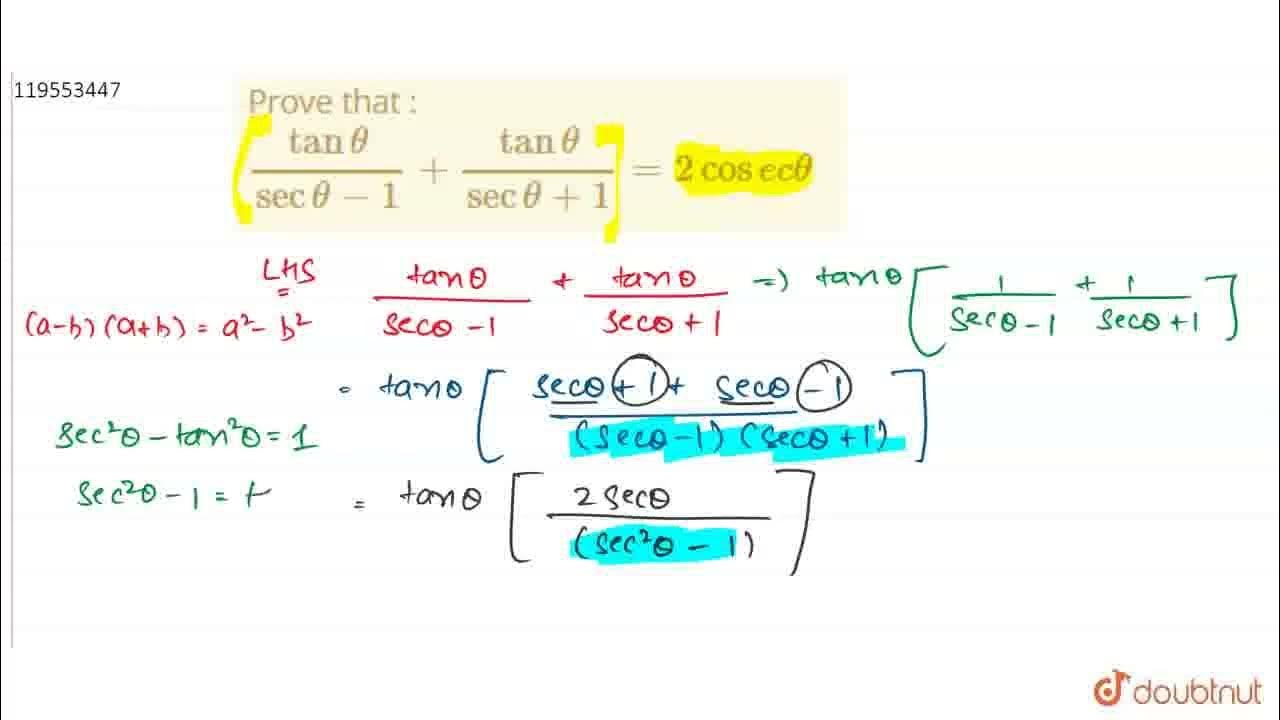 119553447
Prove that :
[tan θ / sec θ − 1 + tan θ / sec θ + 1] = 2 cos ecθ
LHS
tanθ / secθ -1 + tanθ / secθ + 1 => tanθ [1 / secθ -1 + 1 / secθ +1]
(a-b) (a+b) = a² - b²
= tanθ [secθ + 1 + secθ - 1 / (secθ -1) (secθ +1)]
sec²θ - tan²θ = 1
sec²θ - 1 = t
= tanθ [2 secθ / (sec²θ - 1)]
doubtnut